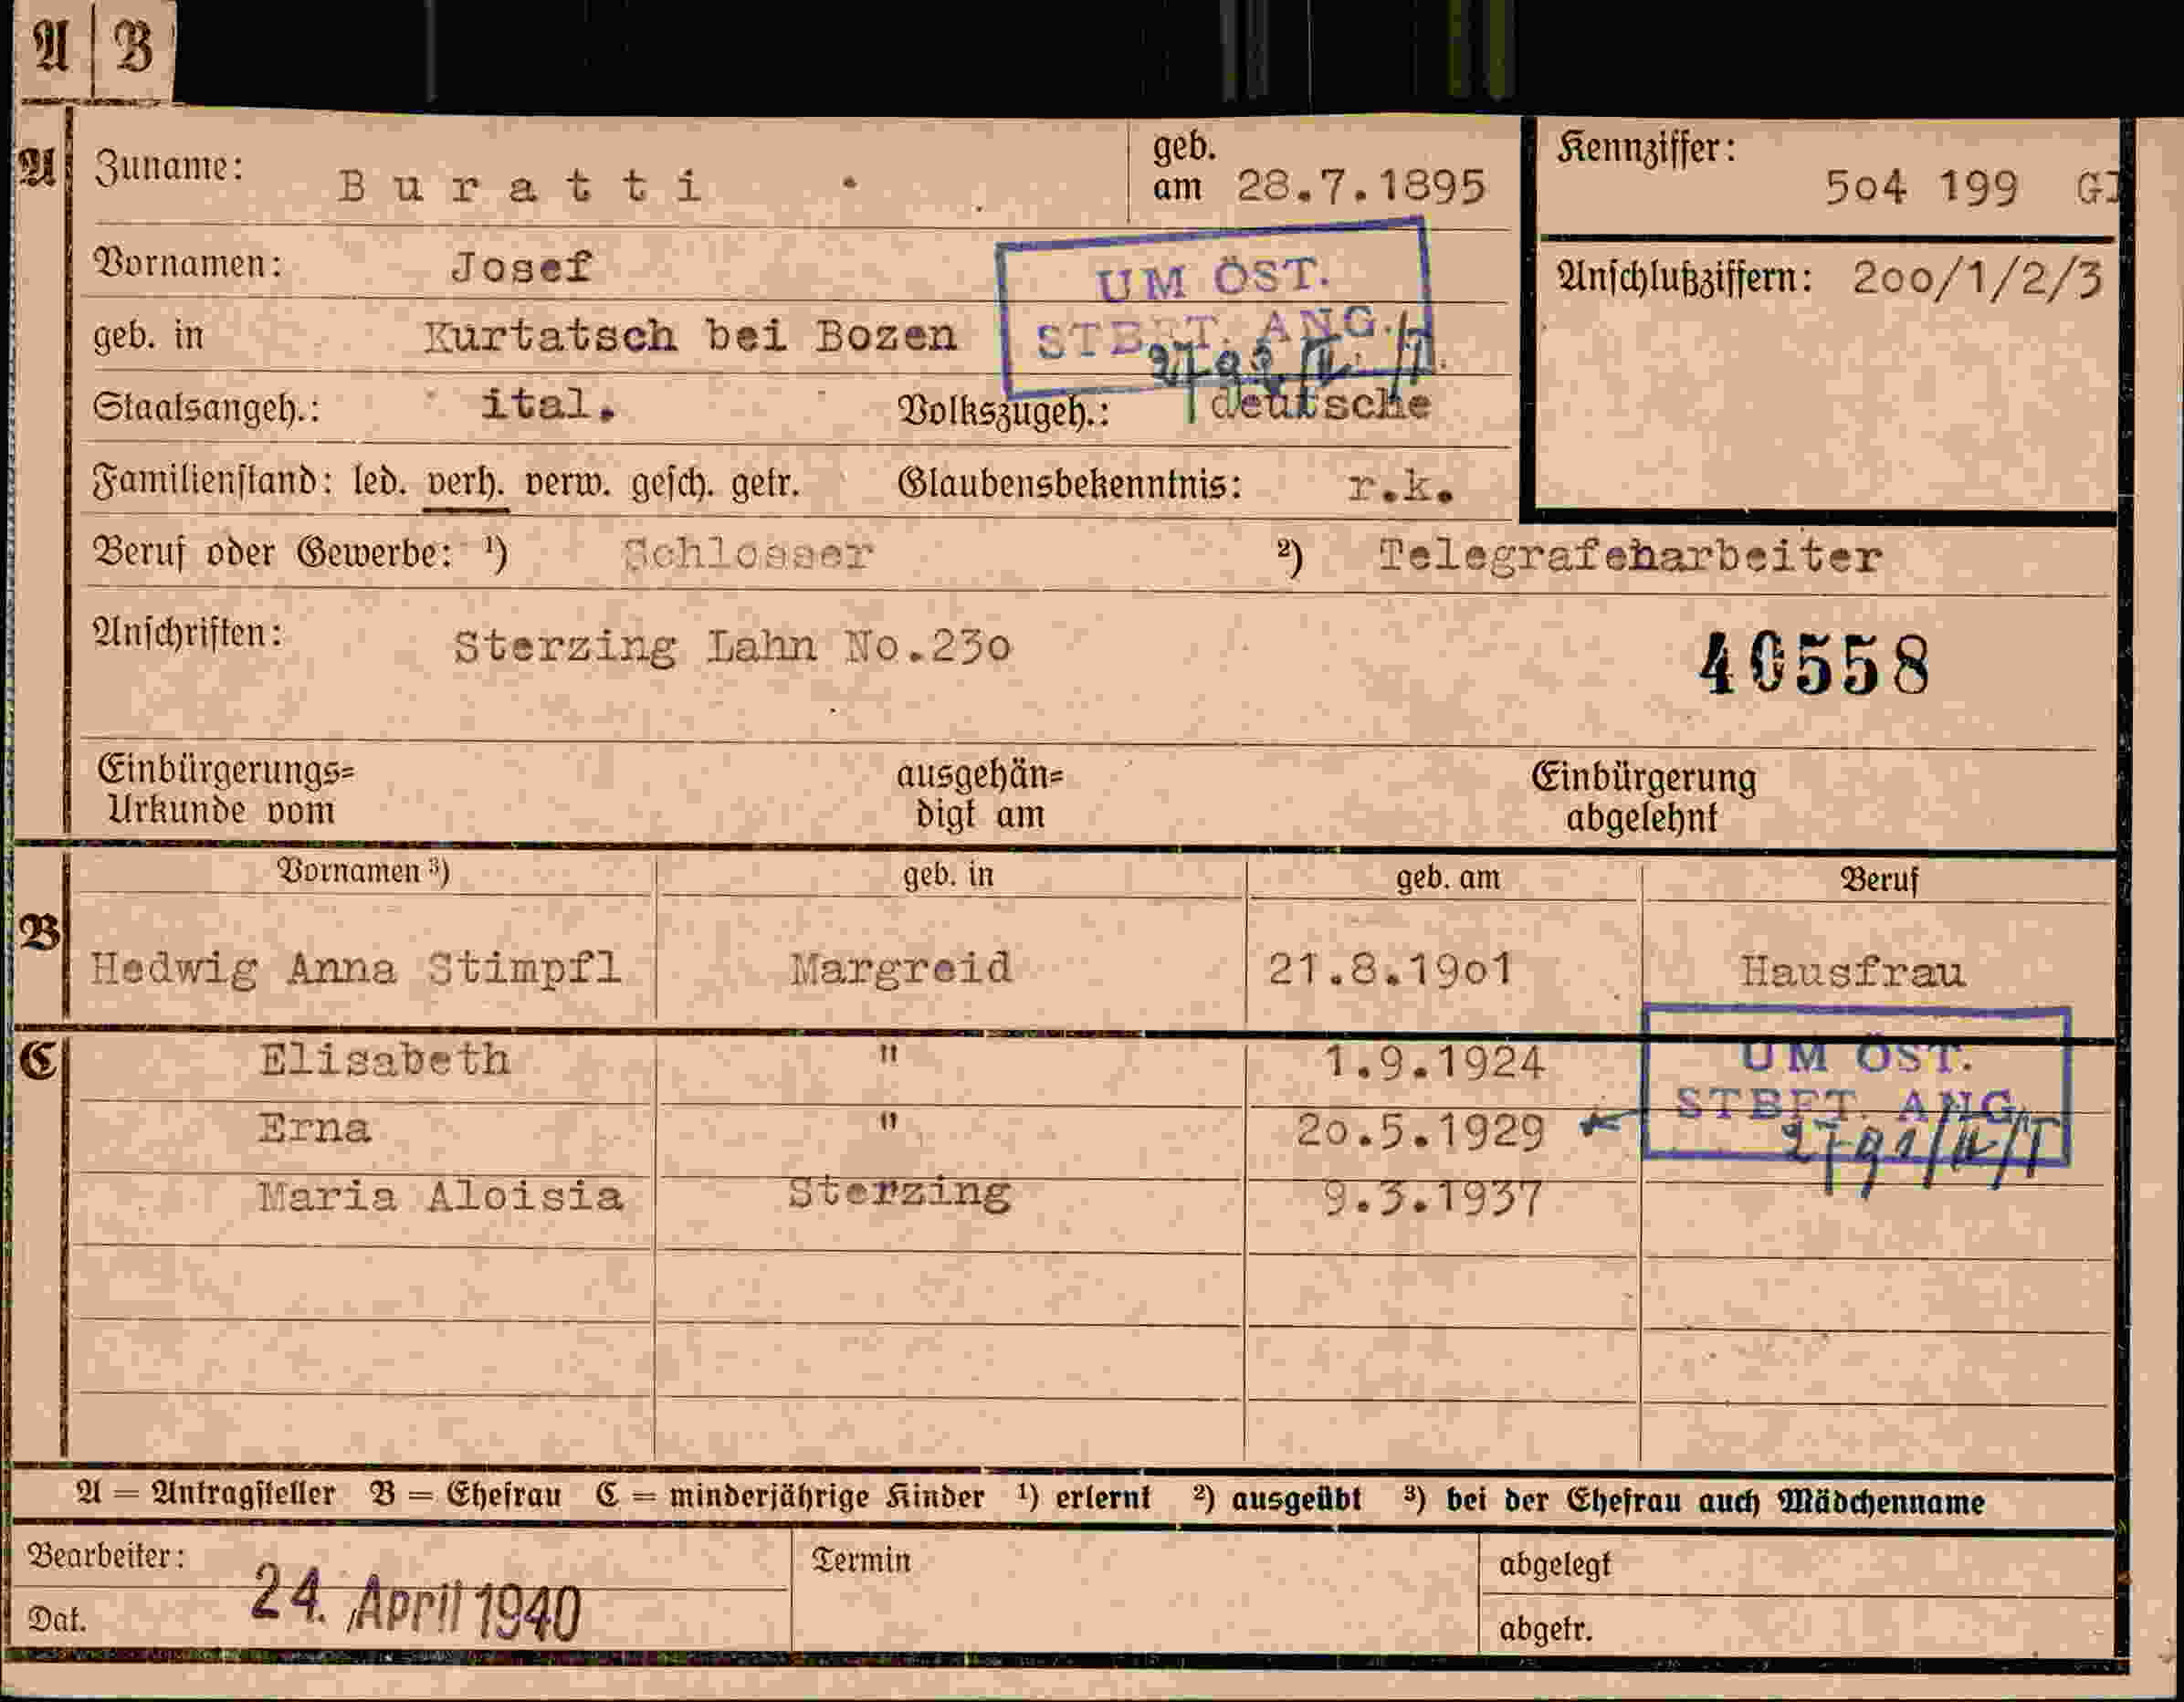 A B
A Zuname: Buratti geb. am 28.7.1895 Kennziffer: 504 199
Vornamen: Josef
UM ÖST. STBFT. ANG.
Anschlußziffern: 200/1/2/3
geb. in Kurtatsch bei Bozen
Staatsangeh.: ital. Volkszugeh.: deutsche
Familienstand: led. verh. verw. gesch. getr. Glaubensbekenntnis: r.k.
Beruf oder Gewerbe: ¹) Schlosser ²) Telegrafenarbeiter
Anschriften: Sterzing Lahn No.230 40558
Einbürgerungs= ausgehän= Einbürgerung
Urkunde vom digt am abgelehnt
Vornamen ³) geb. in geb. am Beruf
B Hedwig Anna Stimpfl Margreid 21.8.1901 Hausfrau
C Elisabeth " 1.9.1924 UM ÖST.
STBFT. ANG.
Erna " 20.5.1929
Maria Aloisia Sterzing 9.3.1937
A = Antragsteller B = Ehefrau C = minderjährige Kinder ¹) erlernt ²) ausgeübt ³) bei der Ehefrau auch Mädchenname
Bearbeiter: Termin abgelegt
Dat. 24. April 1940 abgetr.